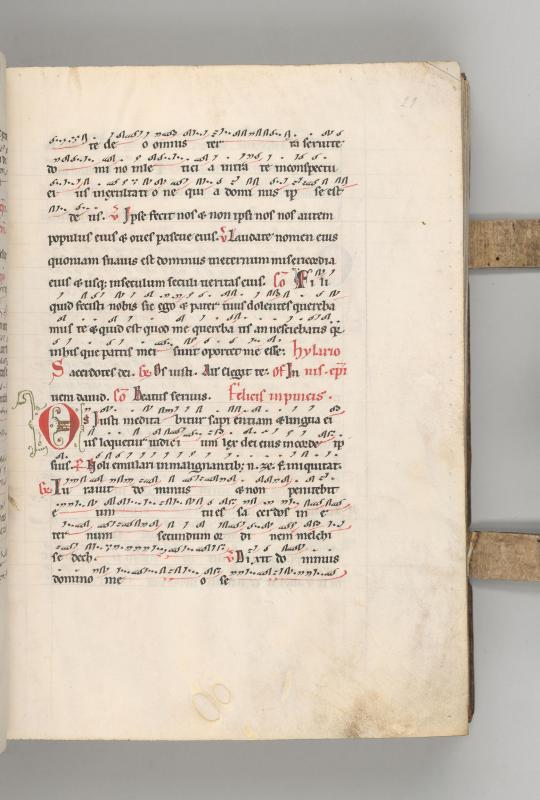 21
te deo omnis ter ra seruite
do mi no in le ticia intra te inconspectu
ei us in exultati o ne quia domi nus ip se est
de us. v Ipse fecit nos & non ipsi nos nos autem
populus eius & oues pascue eius. v Laudate nomen eius
quoniam suauis est dominus ineternum misericordia
eius & usq; inseculum seculi ueritas eius. Co Fi li
quid fecisti nobis sic ego & pater tuus dolentes quereba
mus te & quid est quod me quereba tis an nesciebatis qr
inhis que patris mei sunt oportet me esse: hylario
Sacerdotes dei. Os iusti. All Elegit te. Of In
ueni dauid. Co Beatus seruus. Felicis inpincis.
Os Iusti medita bitur sapi entiam & lingua ei
us loquetur iudici um lex dei eius incorde ip
sius. Noli emulari inmalignantib; n.
Iu rauit do minus & non penitebit
e um tu es sa cerdos in e
ter num secundum or di nem melchi
se dech. v Di xit do minus
domino me o se